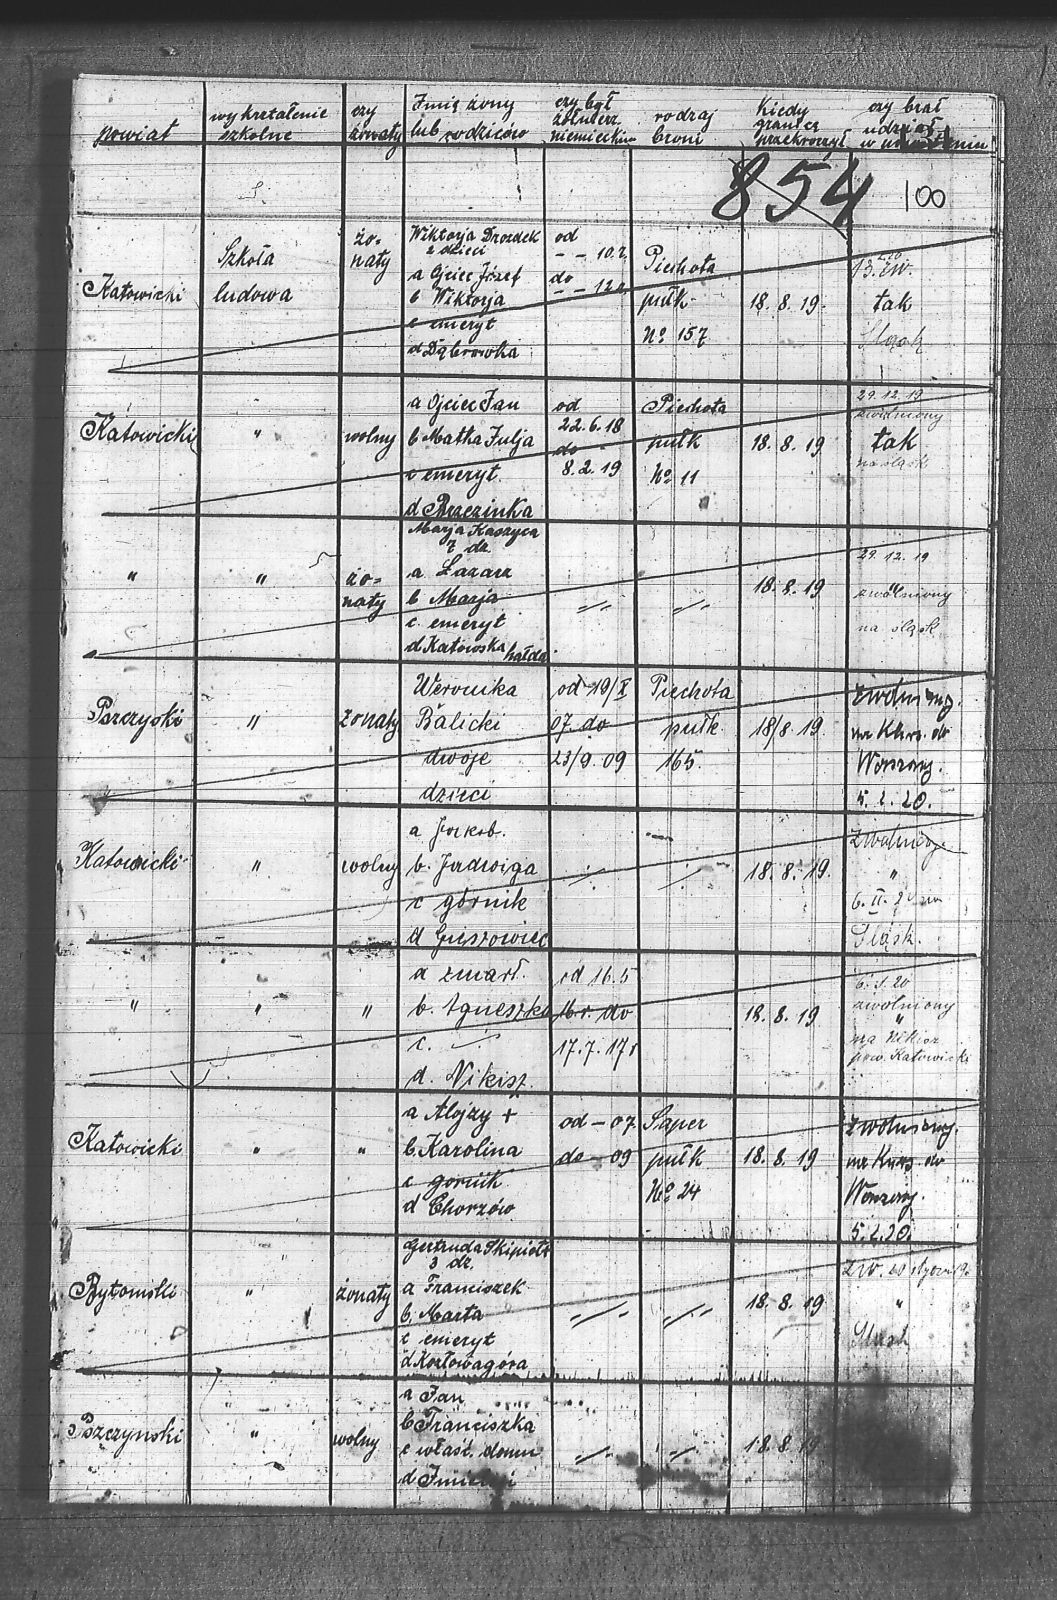 powiat
wykształcenie szkolne
czy żonaty
Imię żony lub rodziców
czy był żołnierz niemieckim
rodzaj broni
Kiedy granicę przekroczył
czy brał udział w
854
100
Katowicki
Szkoła
ludowa
żo-
naty
Wiktorja Drozdek
2 dzieci
a Ojciec Józef
b Wiktorja
c emeryt
d Dąbrowka
od
– – 10.7.
do
Piechota
pułk
No 157
18.8.19.
13. zw.
tak
Śląsk
Katowicki
"
wolny
a Ojciec Jan
b Matka Julja
c emeryt.
d Brzezinka
od
22.6.18
do
8.2.19
Piechota
pułk
No 11
18.8.19
29.12.19
zwolniony
tak
na śląsk
"
"
żo-
naty
Marja Kaszyca
7 dz.
a Łazarz
b Marja
c emeryt
d Katowska hałda
-//-
-//-
18.8.19
29.12.19
"
zwolniony
na śląsk
Pszczyski
"
żonaty
Weronika
Balicki
dwoje
dzieci
od 19/X
07. do
23/9.09
Piechota
pułk
165.
18/8.19.
na Kurs. do
5.2.20.
Katowicki
"
wolny
a Jakob.
b. Jadwiga
c górnik
d Giszowiec
18.8.19.
"
6.II.20 na
Śląsk.
"
"
"
a zmarł.
b. Agneszka
c.
d. Nikisz
od 16.5
16.r. do
17.7.17r
18.8.19
6.2.20
zwolniony
"
na Nikisz
pow. Katowicki
Katowicki
"
"
a Alojzy +
b. Karolina
c gornik
d Chorzów
od – 07
do – 09
Saper
pułk
No 24
18.8.19
na Kurs. do
5.2.20.
Bytomski
"
żonaty
Gertruda Skipioł
3 dz.
a Franciszek
b. Marta
c emeryt
d Kozłowagóra
-//-
-//-
18.8.19
zw.
"
Śląsk
Pszczynski
"
wolny
a Jan
b Franciszka
c właść. domu
d
-//-
-//-
18.8.19